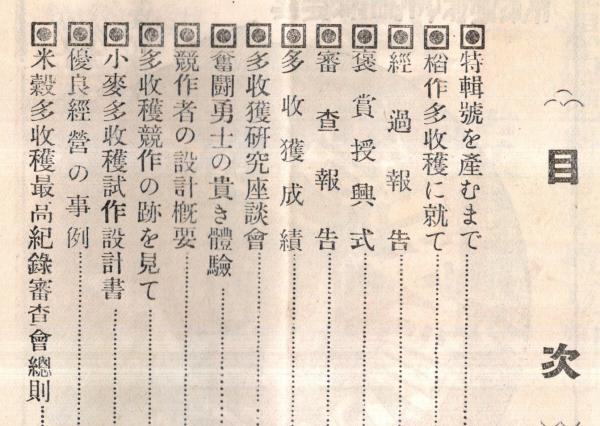 目次
特輯號を產むまで
稻作多收穫に就て
經過報告
褒賞授與式
審查報告
多收獲成績
多收獲硏究座談會
奮鬪勇士の貴き體驗
競作者の設計槪要
多收穫競作の跡を見て
小麥多收穫試作設計書
優良經營の事例
米穀多收穫最高紀錄審査會總則